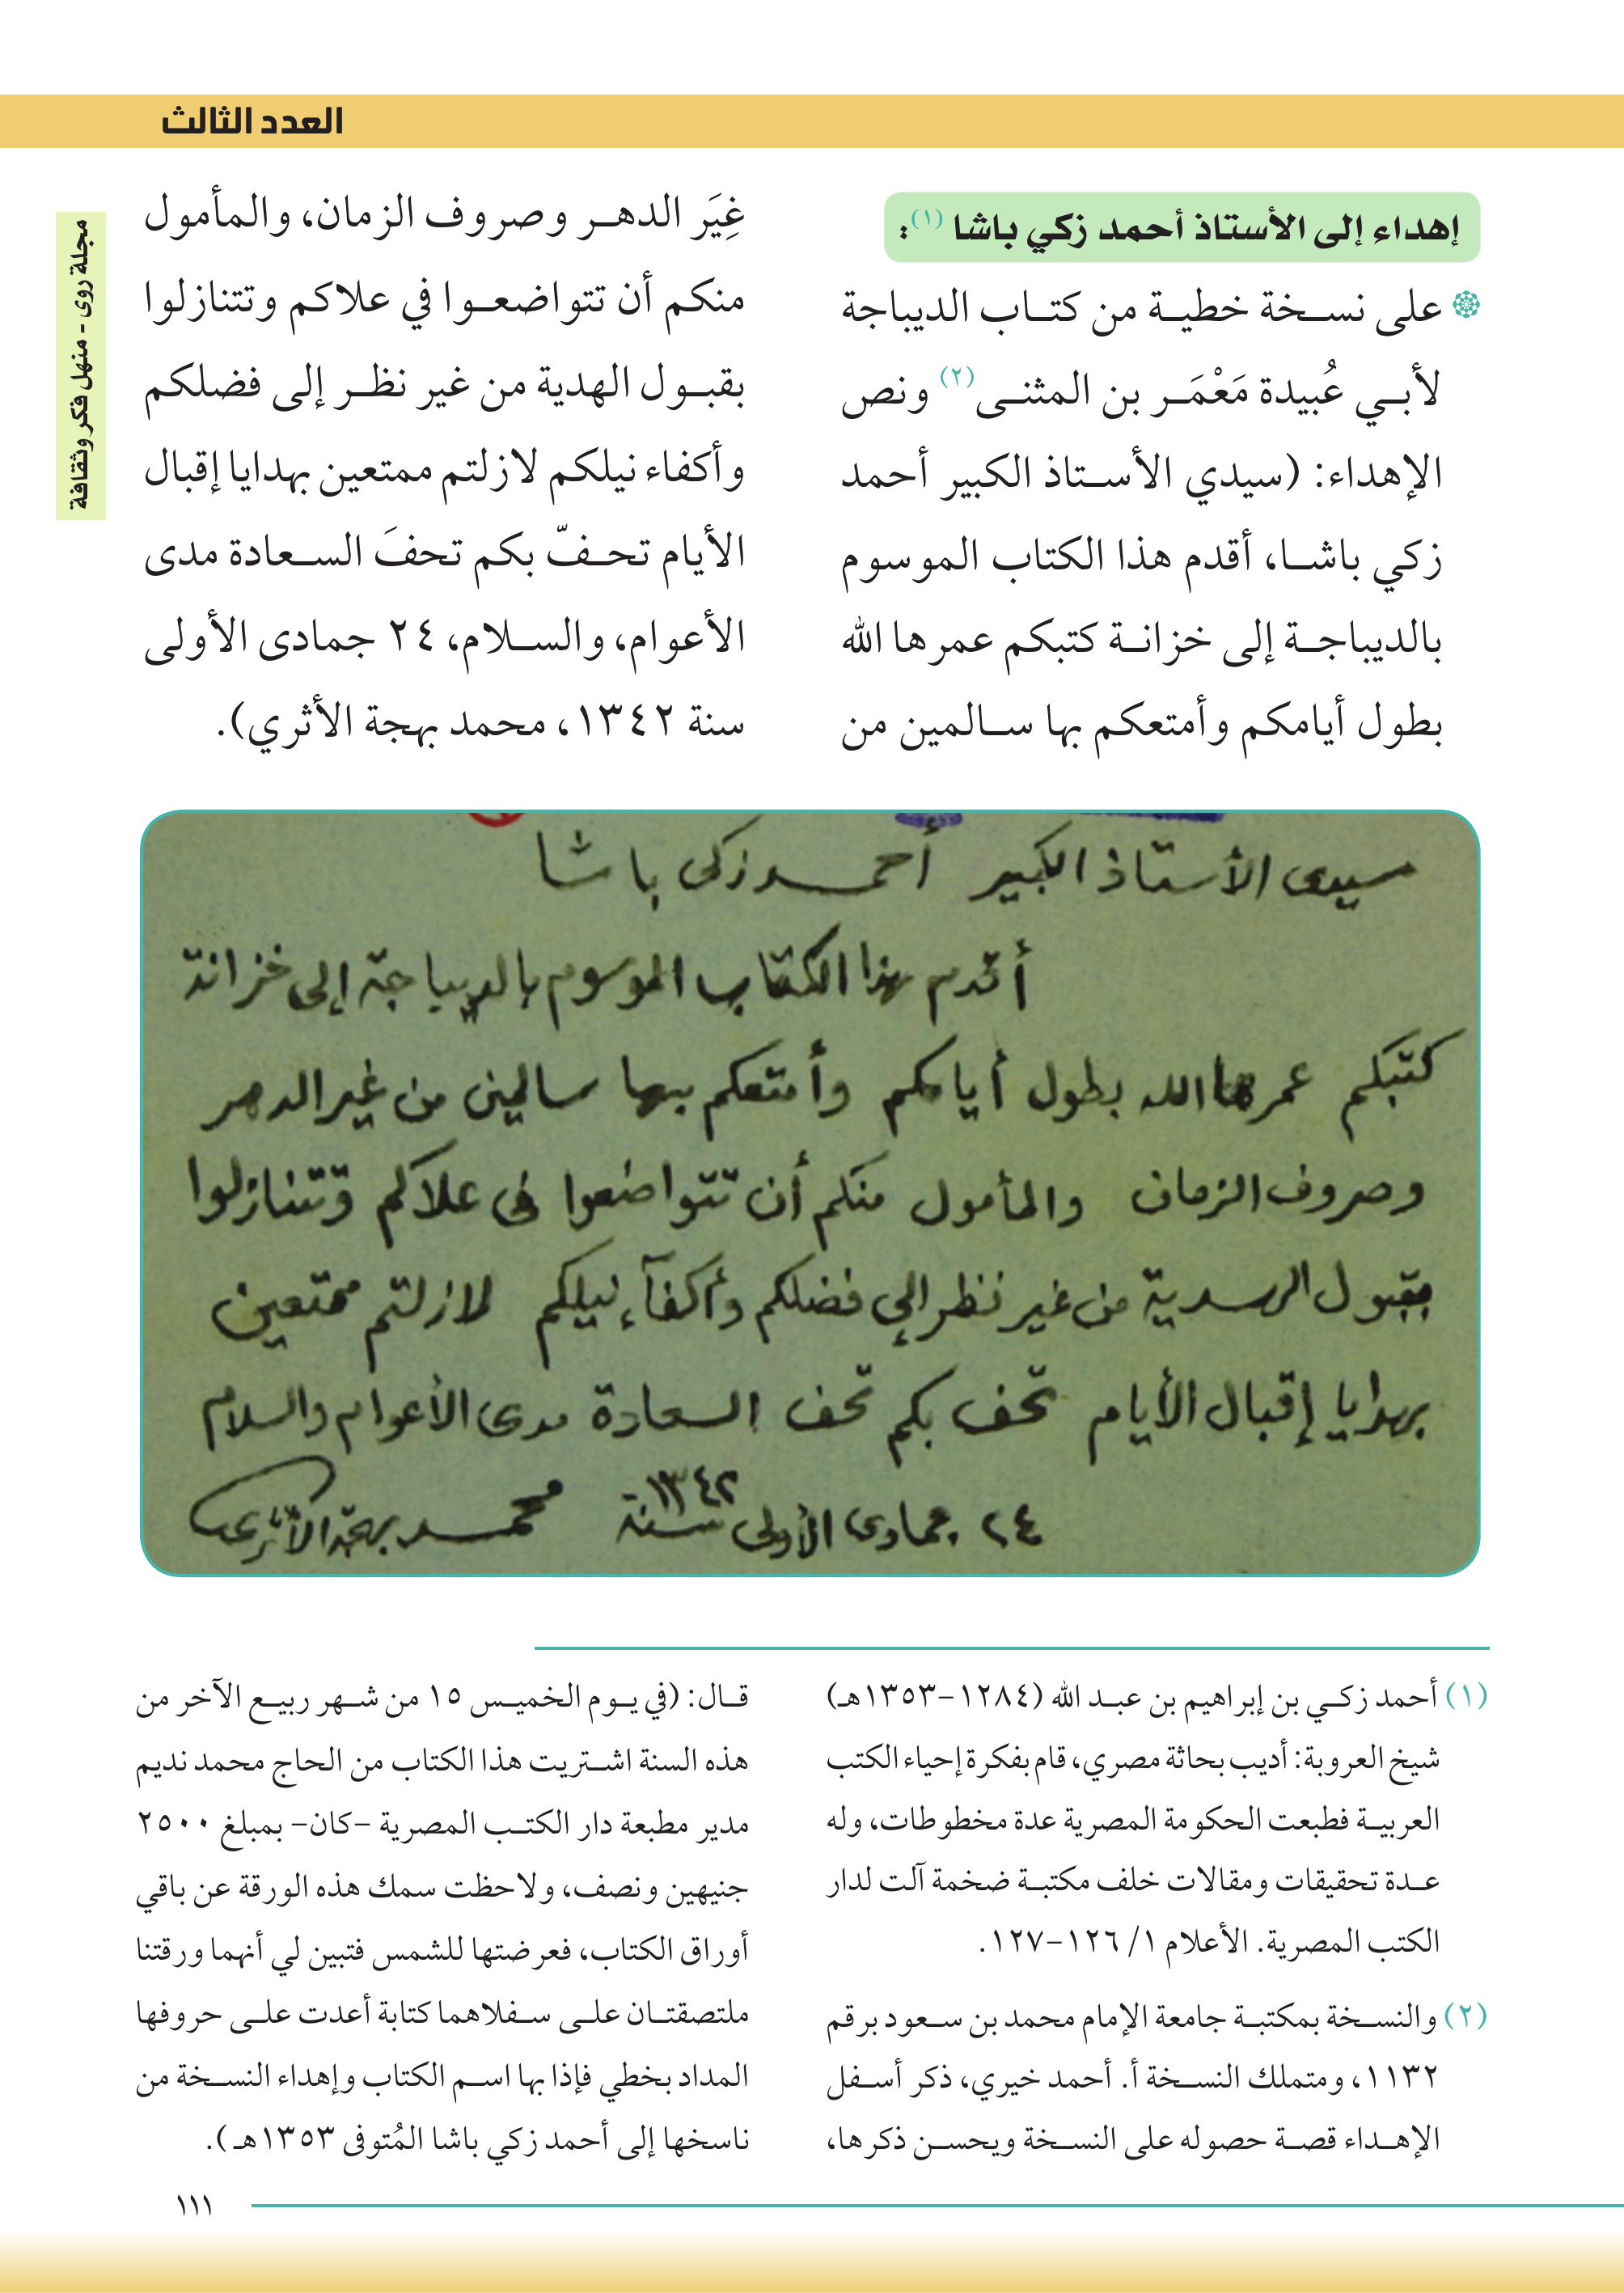 العدد الثالث
مجلة روى - منهل فكر وثقافة
إهداء إلى الأستاذ أحمد زكي باشا (١):
على نسخة خطية من كتاب الديباجة
لأبي عُبيدة مَعْمَر بن المثنى(٢) ونص
الإهداء: (سيدي الأستاذ الكبير أحمد
زكي باشا، أقدم هذا الكتاب الموسوم
بالديباجة إلى خزانة كتبكم عمرها الله
بطول أيامكم وأمتعكم بها سالمين من
غِيَر الدهر وصروف الزمان، والمأمول
منكم أن تتواضعوا في علاكم وتتنازلوا
بقبول الهدية من غير نظر إلى فضلكم
وأكفاء نيلكم لازلتم ممتعين بهدايا إقبال
الأيام تحفّ بكم تحفَ السعادة مدى
الأعوام، والسلام، ٢٤ جمادى الأولى
سنة ١٣٤٢، محمد بهجة الأثري).
سيدى الأستاذ الكبير أحمد زكى باشا
أقدم هذا الكتاب الموسوم بالديباجة إلى خزانة
كتبكم عمرها الله بطول أيامكم وأمتعكم بها سالمين من غير الدهر
وصروف الزمان والمأمول منكم أن تتواضعوا فى علاكم وتتنازلوا
بقبول الهدية من غير نظر إلى فضلكم وأكفآء نيلكم لازلتم ممتعين
بهدايا إقبال الأيام تحف بكم تحف السعادة مدى الأعوام والسلام
٢٤ جمادى الأولى سنة ١٣٤٢ محمد بهجة الأثرى
(١) أحمد زكي بن إبراهيم بن عبد الله (١٢٨٤-١٣٥٣هـ)
شيخ العروبة: أديب بحاثة مصري، قام بفكرة إحياء الكتب
العربية فطبعت الحكومة المصرية عدة مخطوطات، وله
عدة تحقيقات ومقالات خلف مكتبة ضخمة آلت لدار
الكتب المصرية. الأعلام ١/ ١٢٦-١٢٧.
(٢) والنسخة بمكتبة جامعة الإمام محمد بن سعود برقم
١١٣٢، ومتملك النسخة أ. أحمد خيري، ذكر أسفل
الإهداء قصة حصوله على النسخة ويحسن ذكرها،
قال: (في يوم الخميس ١٥ من شهر ربيع الآخر من
هذه السنة اشتريت هذا الكتاب من الحاج محمد نديم
مدير مطبعة دار الكتب المصرية -كان- بمبلغ ٢٥٠٠
جنيهين ونصف، ولاحظت سمك هذه الورقة عن باقي
أوراق الكتاب، فعرضتها للشمس فتبين لي أنهما ورقتنا
ملتصقتان على سفلاهما كتابة أعدت على حروفها
المداد بخطي فإذا بها اسم الكتاب وإهداء النسخة من
ناسخها إلى أحمد زكي باشا المُتوفى ١٣٥٣هـ ).
١١١